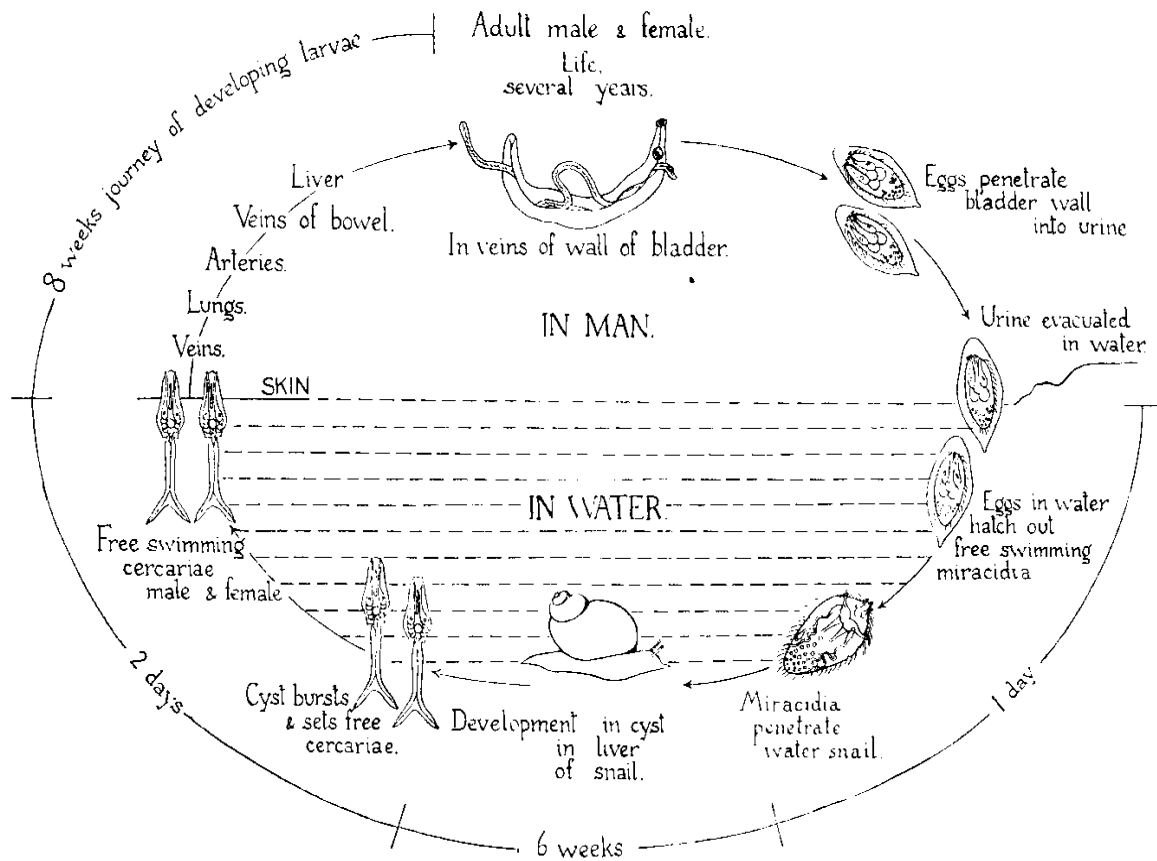 Adult male & female.
Life,
several years.
8 weeks journey of developing larvae
Liver
Veins of bowel.
Arteries.
Lungs.
Veins.
In veins of wall of bladder.
Eggs penetrate
bladder wall
into urine
IN MAN.
Urine evacuated
in water.
SKIN
IN WATER.
Eggs in water
hatch out
free swimming
miracidia
Free swimming
cercariae
male & female
Cyst bursts
& sets free
cercariae.
Development in cyst
in liver
of snail.
Miracidia
penetrate
water snail.
2 days
6 weeks
1 day